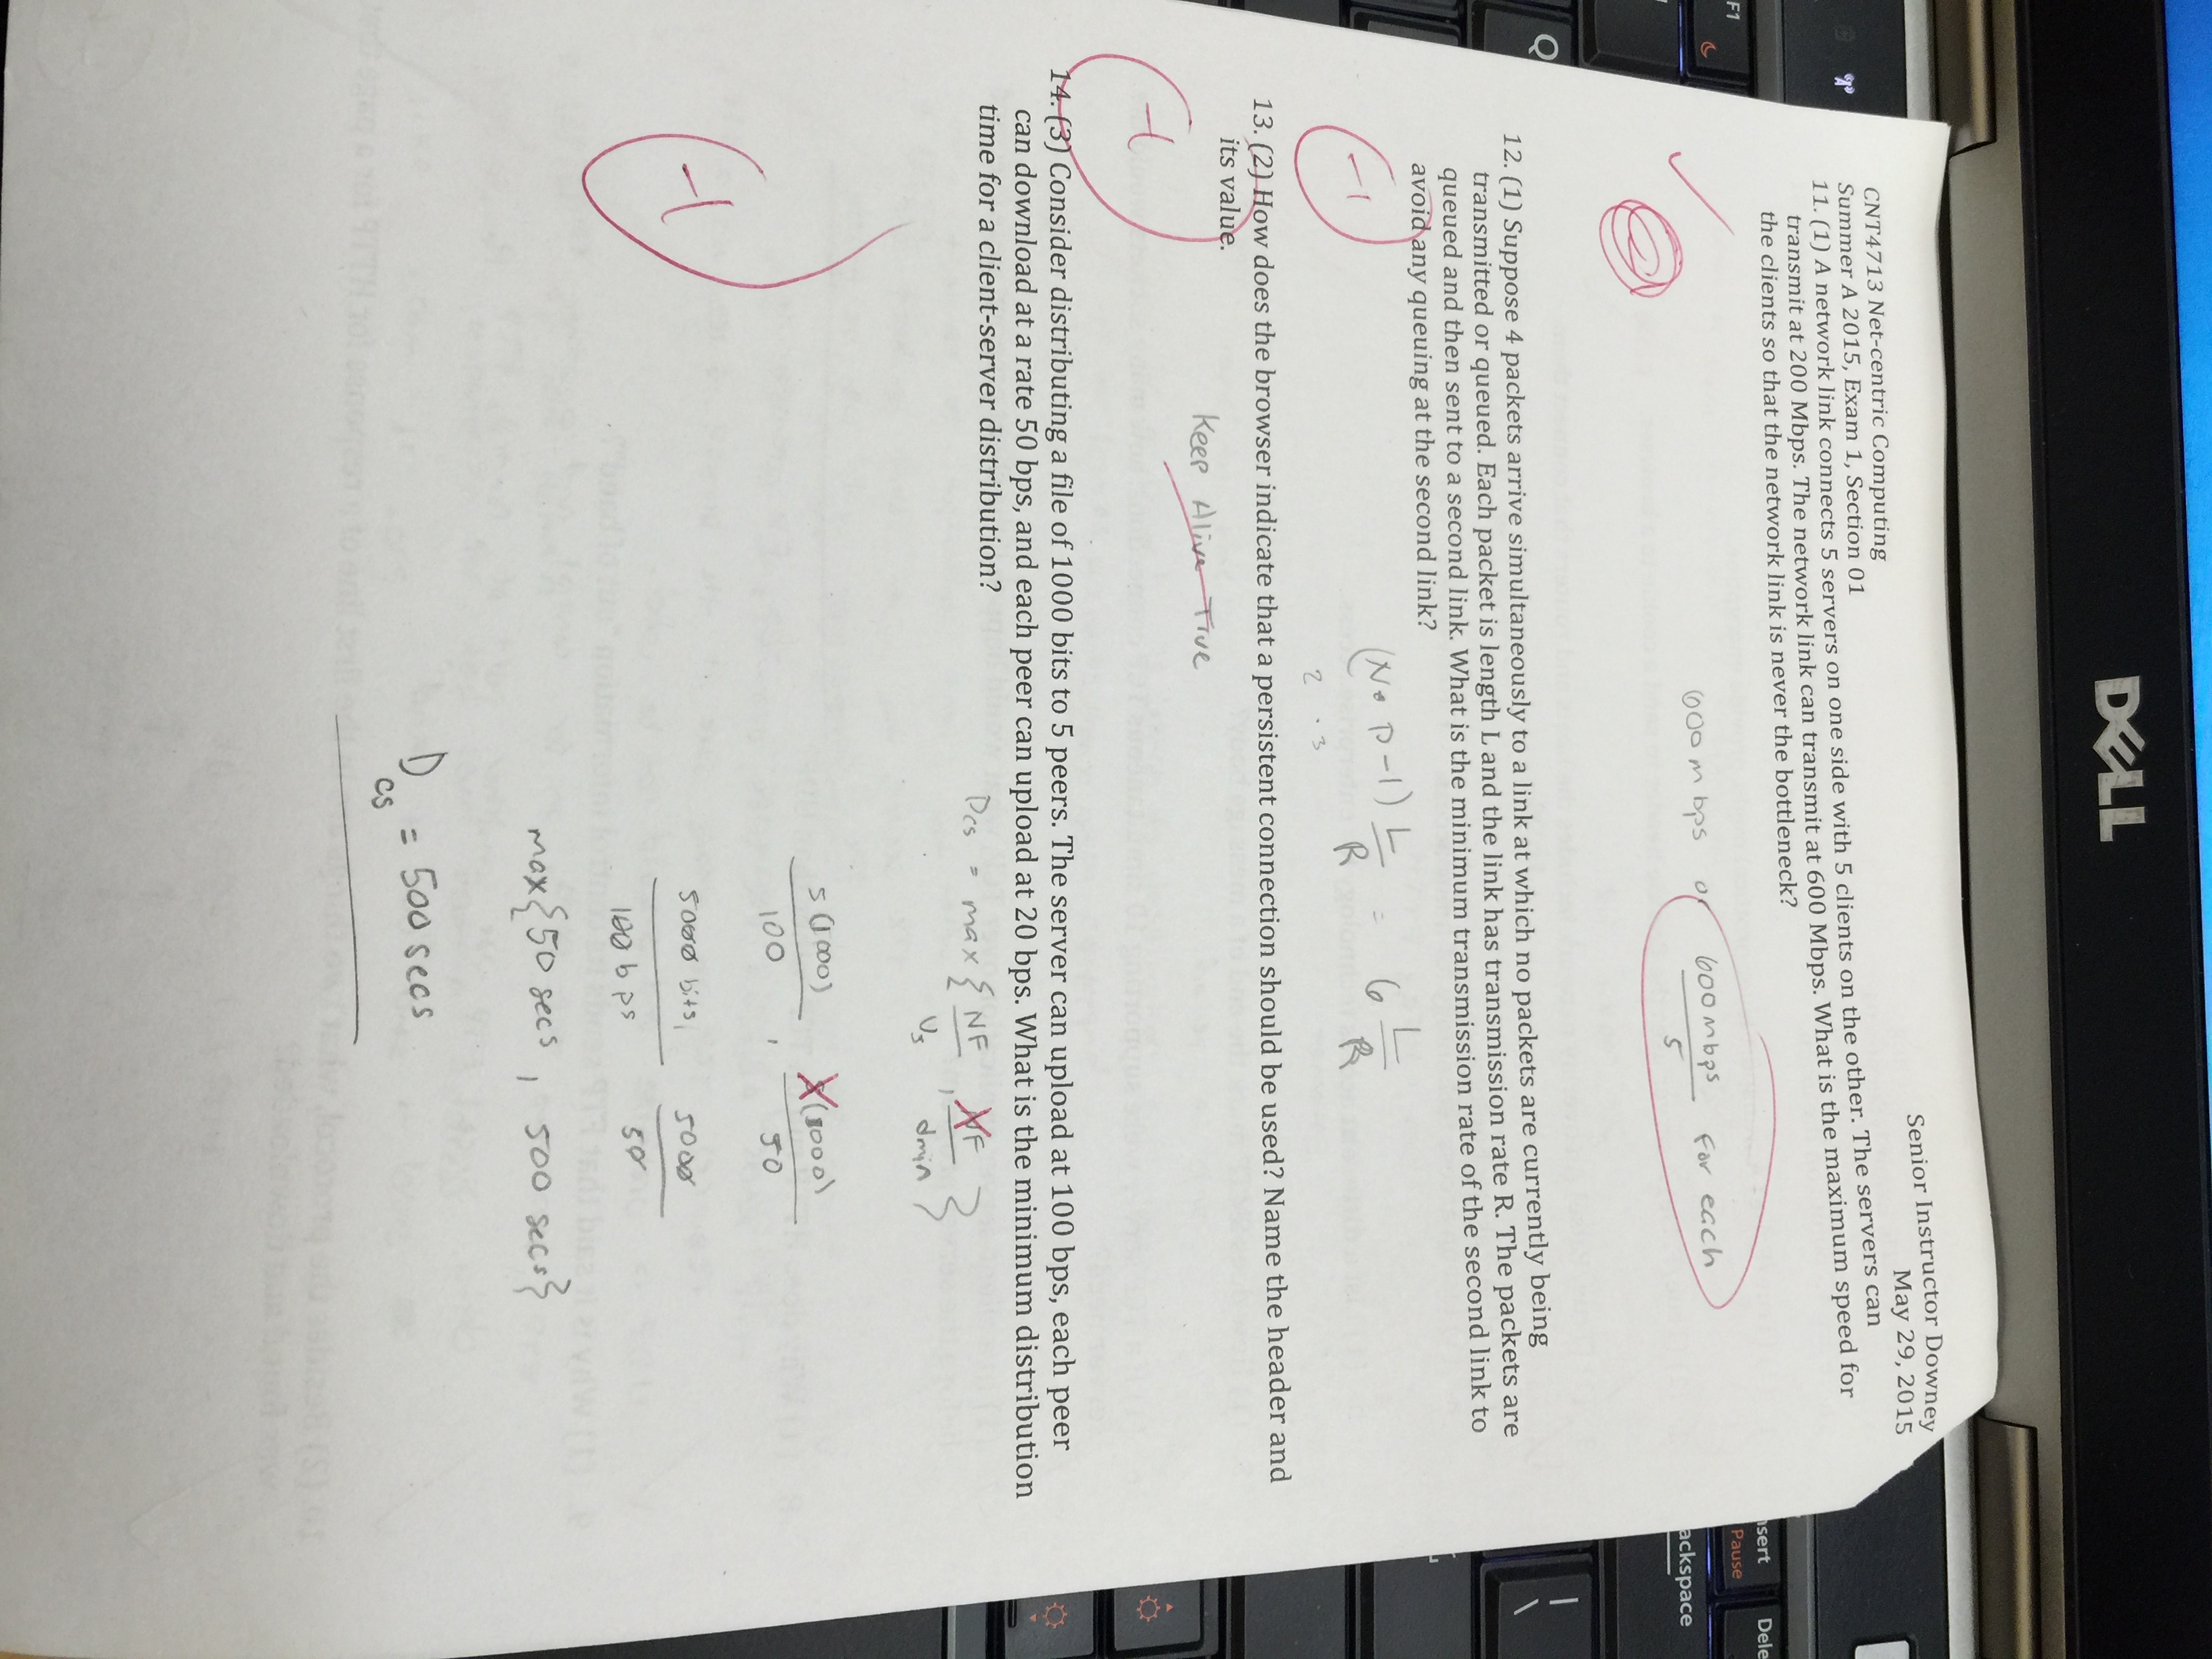 DELL
F1
Q
Insert
Pause
Dele
Backspace
|
\
CNT4713 Net-centric Computing
Senior Instructor Downey
Summer A 2015, Exam 1, Section 01
May 29, 2015
11. (1) A network link connects 5 servers on one side with 5 clients on the other. The servers can
transmit at 200 Mbps. The network link can transmit at 600 Mbps. What is the maximum speed for
the clients so that the network link is never the bottleneck?
600 mbps or 600 mbps for each
5
12. (1) Suppose 4 packets arrive simultaneously to a link at which no packets are currently being
transmitted or queued. Each packet is length L and the link has transmission rate R. The packets are
queued and then sent to a second link. What is the minimum transmission rate of the second link to
avoid any queuing at the second link?
-1
(N • P - 1) L = 6 L
R R
2 . 3
13. (2) How does the browser indicate that a persistent connection should be used? Name the header and
its value.
-1
Keep Alive True
14. (3) Consider distributing a file of 1000 bits to 5 peers. The server can upload at 100 bps, each peer
can download at a rate 50 bps, and each peer can upload at 20 bps. What is the minimum distribution
time for a client-server distribution?
-1
Dcs = max { NF , NF }
Us dmin
5(1000) , (1000)
100 50
5000 bits, 5000
100 bps 50
max{50 secs , 500 secs}
Dcs = 500 secs